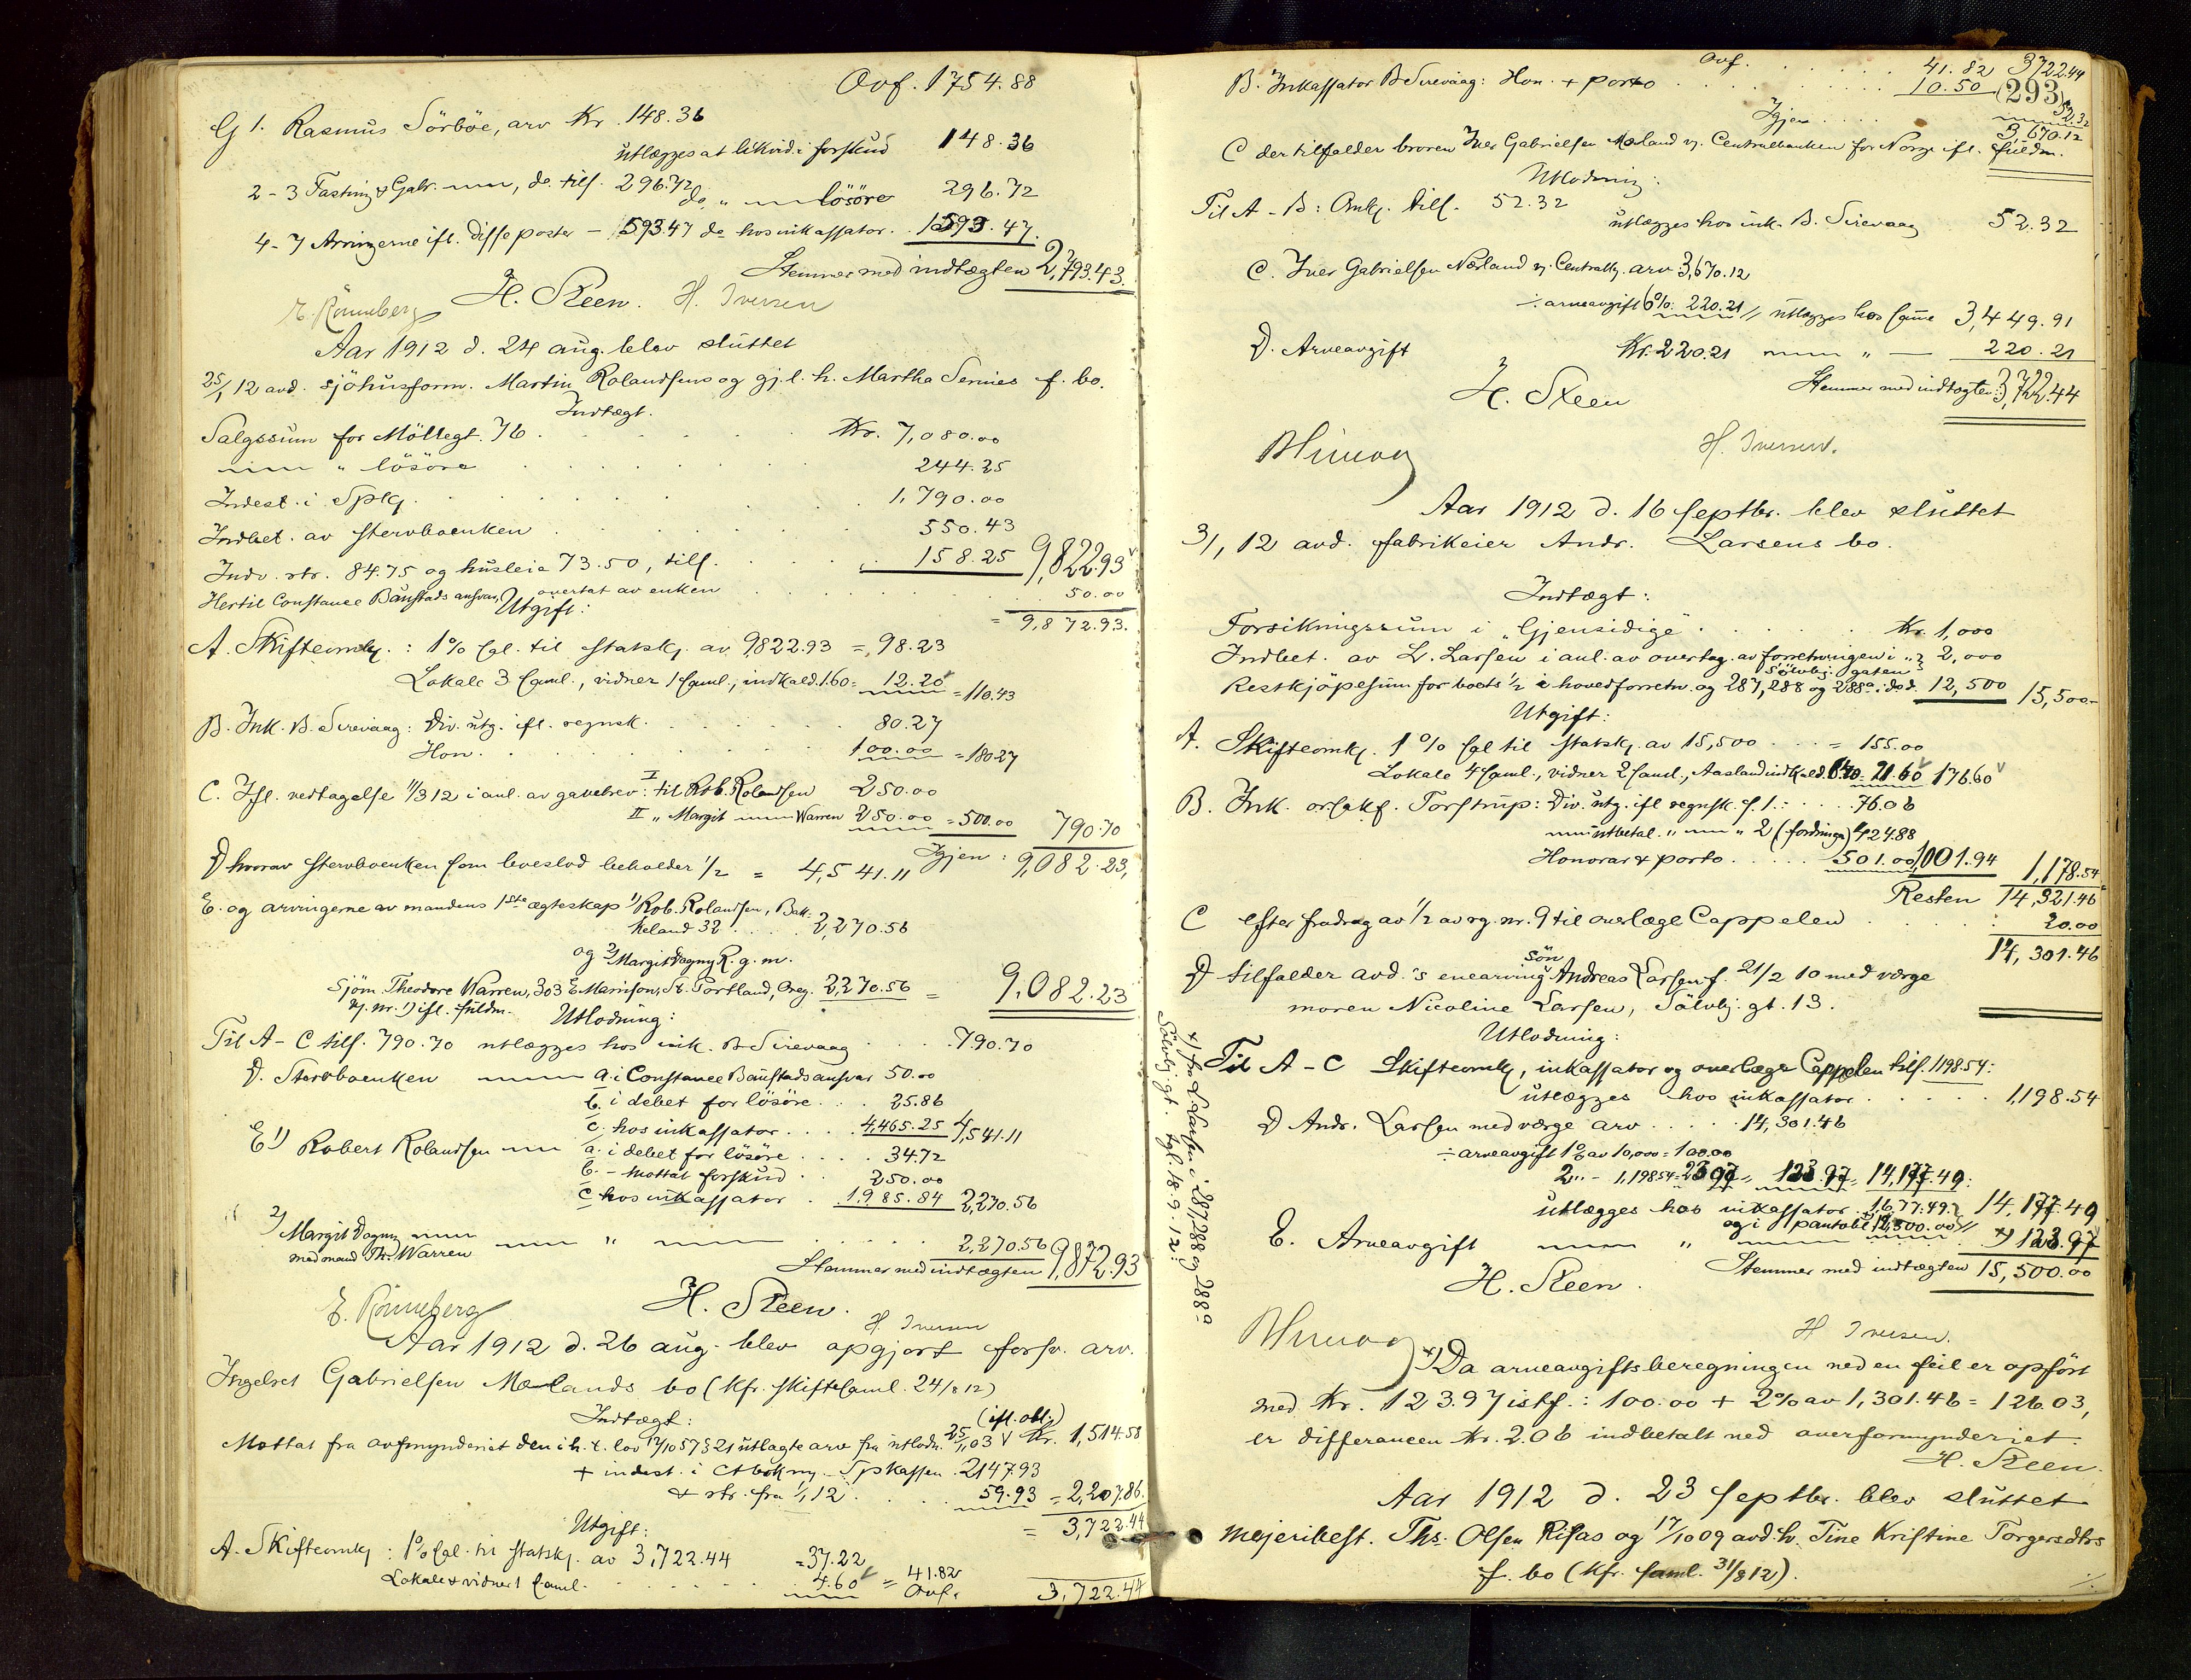 Ovf. 1754.88
G 1. Rasmus Sörböe, arv Kr. 148.36
utlægges at likvid. i forskud 148.36
2-3 Fasting & Gabr. do. tilf. 296.72 do. " lösöre 296.72
4-7 Arvingerne ifl. disse poster - 1593.47 do hos inkassator. 1593.47.
Stemmer med indtægten 2,793.43.
E. Rönneberg H. Steen. H. Iversen
Aar 1912 d. 24 aug. blev sluttet
25/1 12 avd. sjöhusform. Martin Rolandsens og gj.l. h. Martha Serines f. bo.
Indtægt.
Salgssum for Möllegt. 76 . . . Kr. 7,080.00
" lösöre . . . 244.25
Indest. i Spkg. . . . 1,790.00
Indbet. av stervboenken . . . 550.43
Indv. rtr. 84.75 og husleie 73.50, tils. . . . 158.25 9,822.93
Hertil Constance Baustads ansvar, overtat av enken . . . 50.00
Utgift: = 9,872.93.
A. Skifteomk.: 1% sgl. til statsk. av 9822.93 = 98.23
Lokale 3 saml., vidner 1 saml., indkald. 1.60 = 12.20 = 110.43
B. Ink. B. Sirevaag: Div. utg. ifl. regnsk. . . . 80.27
Hon. . . . 100.00 = 180.27
C. Ifl. vedtagelse 11/3 12 i anl. av gavebrev: I til Rob. Rolandsen 250.00
II " Margit Warren 250.00 = 500.00 790.70
Igjen: 9,082.23,
D hvorav stervboenken som boeslod beholder 1/2 = 4,541.11
E. og arvingerne av mandens 1ste ægteskap 1) Rob. Rolandsen, Bak-
keland 32 . . . 2,270.56
og 2) Margit Dagny R. g. m.
sjöm. Theodore Warren, 303 E. Marrison, St. Portland, Oreg. 2,270.56 = 9,082.23
v. nr. 1) ifl. fuldm.
Utlodning:
Til A-C tils. 790.70 utlægges hos ink. B Sirevaag . . . 790.70
D. Stervboenken a. i Constance Baustads ansvar 50.00
b. i debet for lösöre . . . 25.86
c. hos inkassator . . . 4,465.25 4,541.11
E 1) Robert Rolandsen a. i debet for lösöre . . . 34.72
b. - mottat forskud . . 250.00
c hos inkassator . 1,985.84 2,270.56
2) Margit Dagny
med mand Th. Warren " . . . 2,270.56
Stemmer med indtægten 9,872.93
E. Rönneberg H. Steen. H Iversen
Aar 1912 d. 26 aug. blev opgjort forsv. arv.
Ingebret Gabrielsen Mælands bo (kfr. skiftesaml. 24/8 12)
Indtægt: (ifl. obl.)
Mottat fra ovfmynderiet den i h. t. lov 12/10 57 § 21 utlagte arv fra utlodn. 25/1 03 Kr. 1,514.58
+ indest. i Ctbok ny - Spkassen . 2147.93
+ rtr. fra 1/1 12 . . . 59.93 = 2,207.86.
Utgift: = 3,722.44
A. Skifteomk: 1% sgl. til statsk. av 3,722.44 = 37.22
Lokale & vidner 1 saml. . . . 4.60 = 41.82
Ovf. 3,722.44
Ovf. . . . 41.82 3722.44
B. Inkassator B Sirevaag: Hon. + porto . . . 10.50 52.32
(293)
Igjen . . . 3670.12
C der tilfalder broren Iver Gabrielsen Mæland v. Centralbanken for Norge ifl. fuldm.
Utlodning:
Til A-B: Omk. tils. 52.32
utlægges hos ink. B. Sirevaag 52.32
C. Iver Gabrielsen Mæland v. Centralb. arv 3,670.12
÷ arveavgift 6%: 220.21 // utlægges hos samme 3,449.91
D. Arveavgift Kr. 220.21 " — 220.21
H. Steen Stemmer med indtægten: 3,722.44
H. Iversen.
Aar 1912 d. 16 septbr. blev sluttet
3/1 12 avd. fabrikeier Andr. Larsens bo.
Indtægt:
Forsikringssum i "Gjensidige" . . . Kr. 1,000
Indbet. av L. Larsen i anl. av overtag. av forretningen i " 2,000
Sölvbj. gaten
Restkjöpesum for boets 1/2 i hovedforretn. og 287, 288 og 288a i do d. 12,500 15,500.-
Utgift:
A. Skifteomk. 1% sgl til statsk. av 15,500 . . . = 155.00
Lokale 4 saml., vidner 2 saml., Aasland indkald. = 21.60 176.60
B. Ink. orsakf. Torstrup: Div. utg. ifl regnsk. s. 1.: . . . 76.06
utbetal. " " 2 (fordringer) 424.88
Honorar & porto . . . 501.00 1001.94 1,178.54
Resten 14,321.46
C efter fradrag av 1/2 av rg. nr. 9 til overlæge Cappelen . . . 20.00
14,301.46
D tilfalder avd.'s enearving sön Andreas Larsen f. 21/2 10 med værge
moren Nicoline Larsen, Sölvbj. gt. 13.
Utlodning:
Til A-C Skifteomk, inkassator og overlæge Cappelen tils. 1198.54:
utlægges hos inkassator . . . 1,198.54
D Andr. Larsen med værge arv . . . 14,301.46
÷ arveavgift 1% av 10,000 = 100.00
2 " - 1,198.54 = 23.97 = 123.97 = 14,177.49:
utlægges hos inkassator . 1,677.49
og i pantobl. 12,500.00 // 14,177.49
E. Arveavgift " x) 123.97
H. Steen. Stemmer med indtægten 15,500.00
H Iversen.
x) Da arveavgiftsberegningen ved en feil er opfört
med Kr. 123.97 istf.: 100.00 + 2% av 1,301.46 = 126.03,
er differancen Kr. 2.06 indbetalt ved overformynderiet.
H. Steen.
Aar 1912 d. 23 septbr. blev sluttet
mejeribest. Ths. Olsen Risas og 17/10 09 avd. h. Tine Kristine Torgersdtrs
f. bo (kfr. saml. 31/8 12).
x) fra L. Larsen i 287, 288 og 288a
Sölvbj. gt. tgl. 18.9.12.